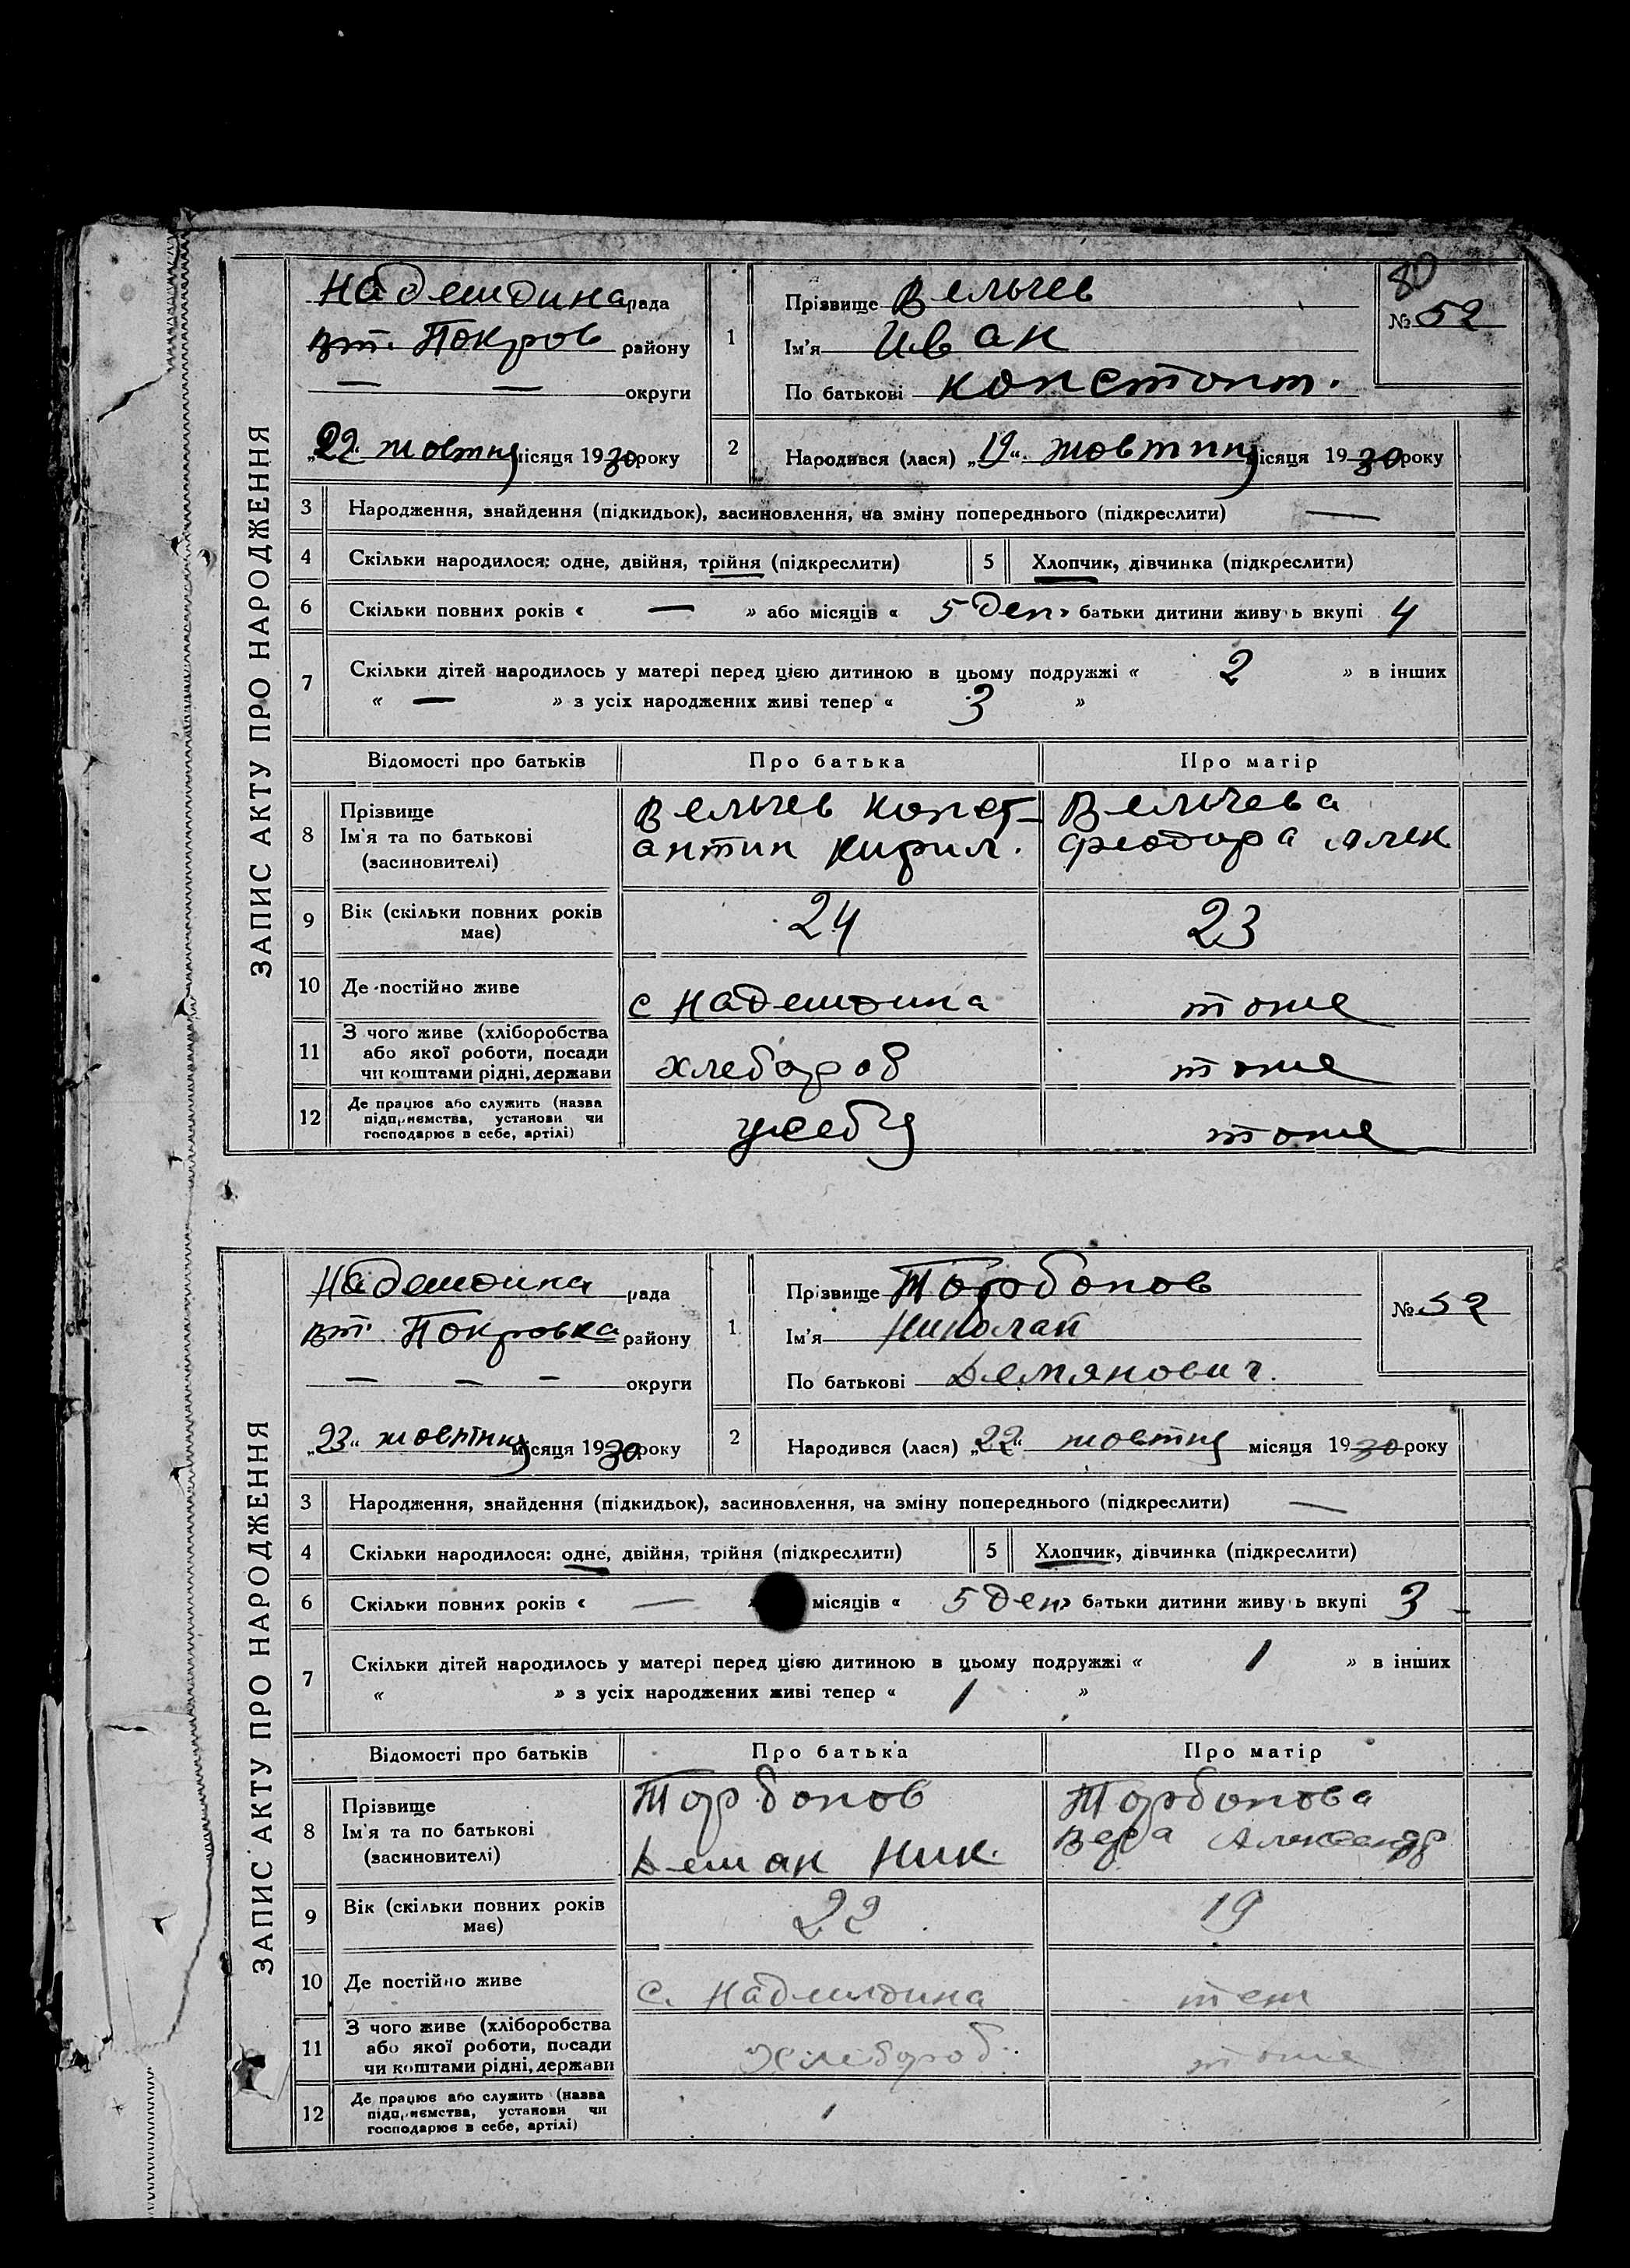 80
ЗАПИС АКТУ ПРО НАРОДЖЕННЯ
Надеждина рада
Вт. Покров району
— — округи
„22“ жовтня місяця 1930 року
1
Прізвище Вельчев
Ім'я Иван
По батькові Констонт.
№ 52
2
Народився (лася) „19“ жовтня місяця 1930 року
3 Народження, знайдення (підкидьок), засиновлення, на зміну попереднього (підкреслити) —
4 Скільки народилося: одне, двійня, трійня (підкреслити) 5 Хлопчик, дівчинка (підкреслити)
6 Скільки повних років « — » або місяців « 5 ден » батьки дитини живуть вкупі 4
7 Скільки дітей народилось у матері перед цією дитиною в цьому подружжі « 2 » в інших
« — » з усіх народжених живі тепер « 3 »
Відомості про батьків Про батька Про матір
8 Прізвище
Ім'я та по батькові
(засиновителі)
Вельчев Конст-
антин Кирил.
Вельчева
Феодора Алек
9 Вік (скільки повних років
має)
24 23
10 Де постійно живе с Надеждина тоже
11 З чого живе (хліборобства
або якої роботи, посади
чи коштами рідні, держави
хлебороб тоже
12 Де працює або служить (назва
підприємства, установи чи
господарює в себе, артілі)
усебя тоже
ЗАПИС АКТУ ПРО НАРОДЖЕННЯ
Надеждина рада
Вт. Покровка району
— — — округи
„23“ жовтня місяця 1930 року
1
Прізвище Торбонов
Ім'я Николай
По батькові Демянович.
№ 52
2
Народився (лася) „22“ жовтня місяця 1930 року
3 Народження, знайдення (підкидьок), засиновлення, на зміну попереднього (підкреслити) —
4 Скільки народилося: одне, двійня, трійня (підкреслити) 5 Хлопчик, дівчинка (підкреслити)
6 Скільки повних років « — » місяців « 5 ден » батьки дитини живуть вкупі 3
7 Скільки дітей народилось у матері перед цією дитиною в цьому подружжі « 1 » в інших
« » з усіх народжених живі тепер « 1 »
Відомості про батьків Про батька Про матір
8 Прізвище
Ім'я та по батькові
(засиновителі)
Торбонов
Демян Ник.
Торбонова
Вера Александр
9 Вік (скільки повних років
має)
22 19
10 Де постійно живе с. Надеждина
11 З чого живе (хліборобства
або якої роботи, посади
чи коштами рідні, держави
Хлебороб. тоже
12 Де працює або служить (назва
підприємства, установи чи
господарює в себе, артілі)